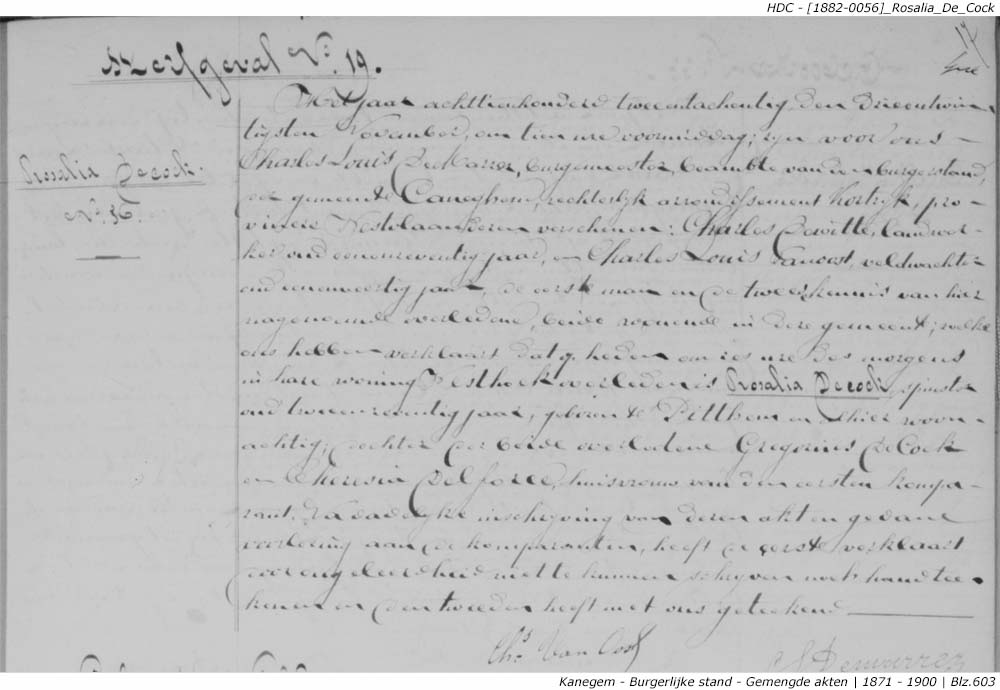 HDC - [1882-0056]_Rosalia_De_Cock
19
Sterfgeval N° 19.
Rosalia Decock.
N° 56
Het jaar achttienhonderd tweeentachentig, den drieentwin
tigsten November, om tien ure voormiddag; zijn voor ons
Charles Louis Dewarrez, burgemeester, beambte van den burgerstand,
der gemeente Caneghem, rechterlijk arrondissement Kortrijk, pro-
vincie Westvlaanderen verschenen: Charles Dewitte, landwer-
ker oud eenenzeventig jaar, en Charles Louis Vanoost, veldwachter
oud eenenveertig jaar, de eerste man en de tweede kennis van hier
nagenoemde overledene, beide woonende in deze gemeente; welke
ons hebben verklaart dat op heden om zes ure des morgens
in hare woning Westhoek overleden is Rosalia Decock, spinster
oud tweeenzeventig jaar, geboren te Pitthem en alhier woon-
achtig; dochter der beide overledene Gregorius DeCock
en Theresia Delforce, huisvrouw van den eersten kompa-
rant. Na dadelijke inschrijving van dezen akt en gedane
voorlezing aan de komparanten, heeft de eerste verklaart
door ongeleerdheid niet te kunnen schrijven noch handtee-
kenen en den tweeden heeft met ons geteekend
Chs Van Oost
Ch Dewarrez
Kanegem - Burgerlijke stand - Gemengde akten | 1871 - 1900 | Blz.603